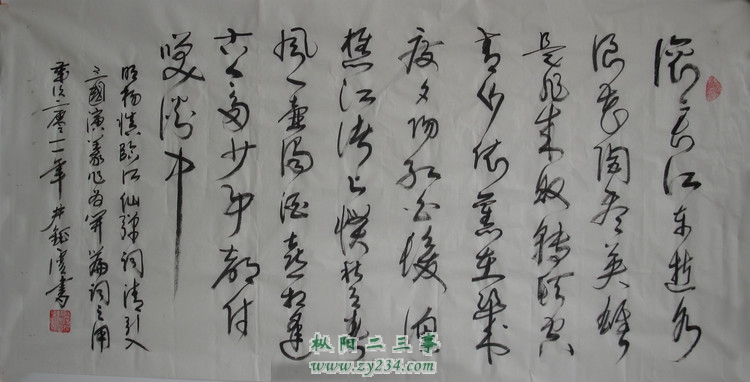 滚长江东逝水
浪花淘尽英雄
是非成败转头空
青山依旧在几
度夕阳红白发渔
樵江渚上惯看秋月春
风一壶浊酒喜相逢
古今多少事都付
笑谈中
明杨慎临江仙弹词清引入
三國演義作为开篇词之用
二零一一年 书
枞阳二三事
www.zy234.com